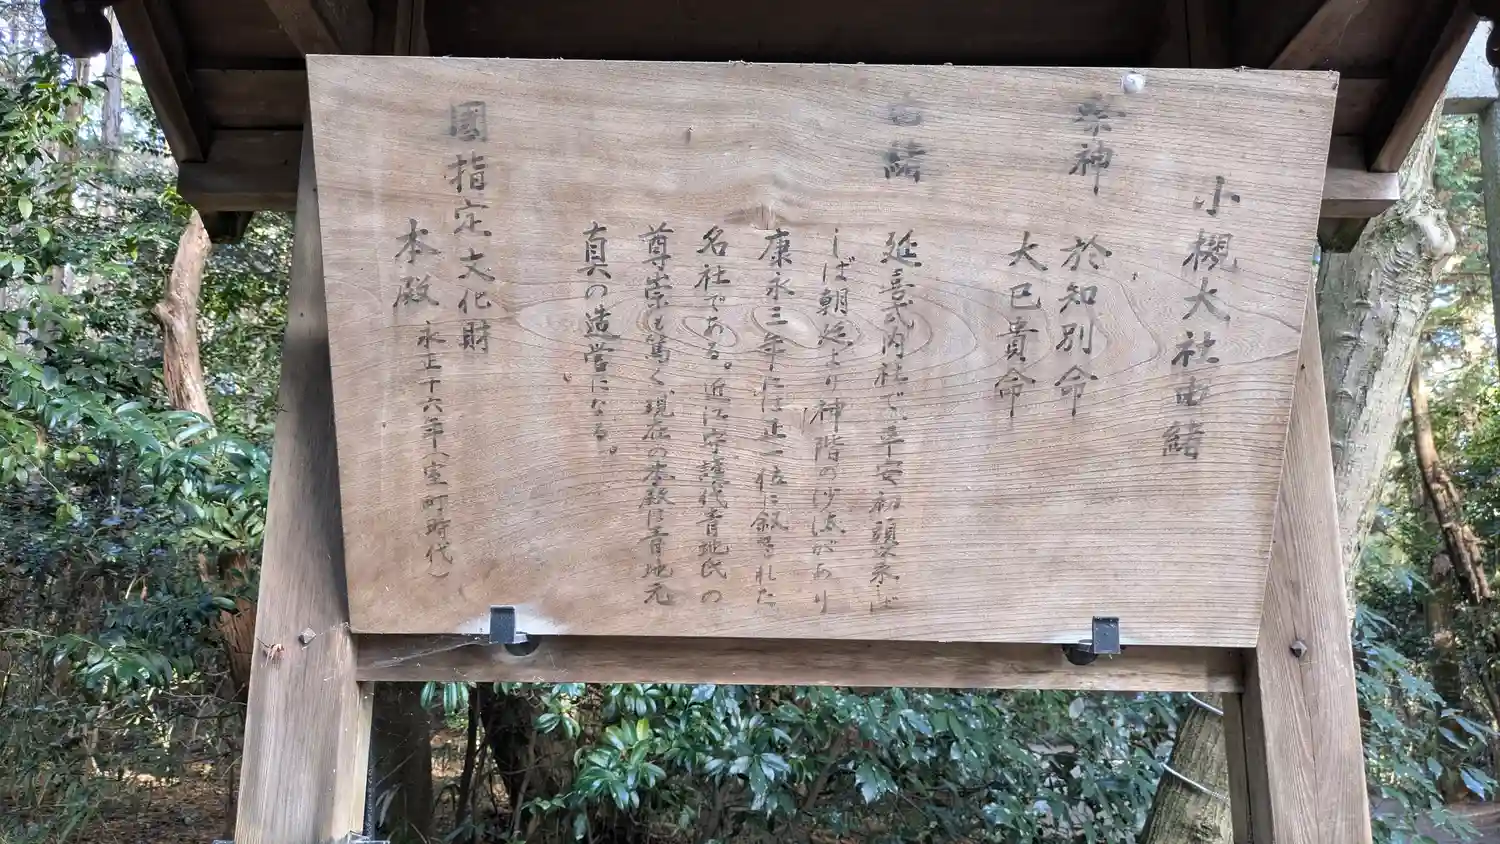 小槻大社由緒
祭神
於知別命
大己貴命
由緒
延喜式内社で、平安初頭来しば
しば朝廷より神階の沙汰があり
康永三年には正一位に叙された
名社である。近江守護代青地氏の
尊崇も篤く、現在の本殿は青地元
真の造営になる。
國指定文化財
本殿 永正十六年(室町時代)